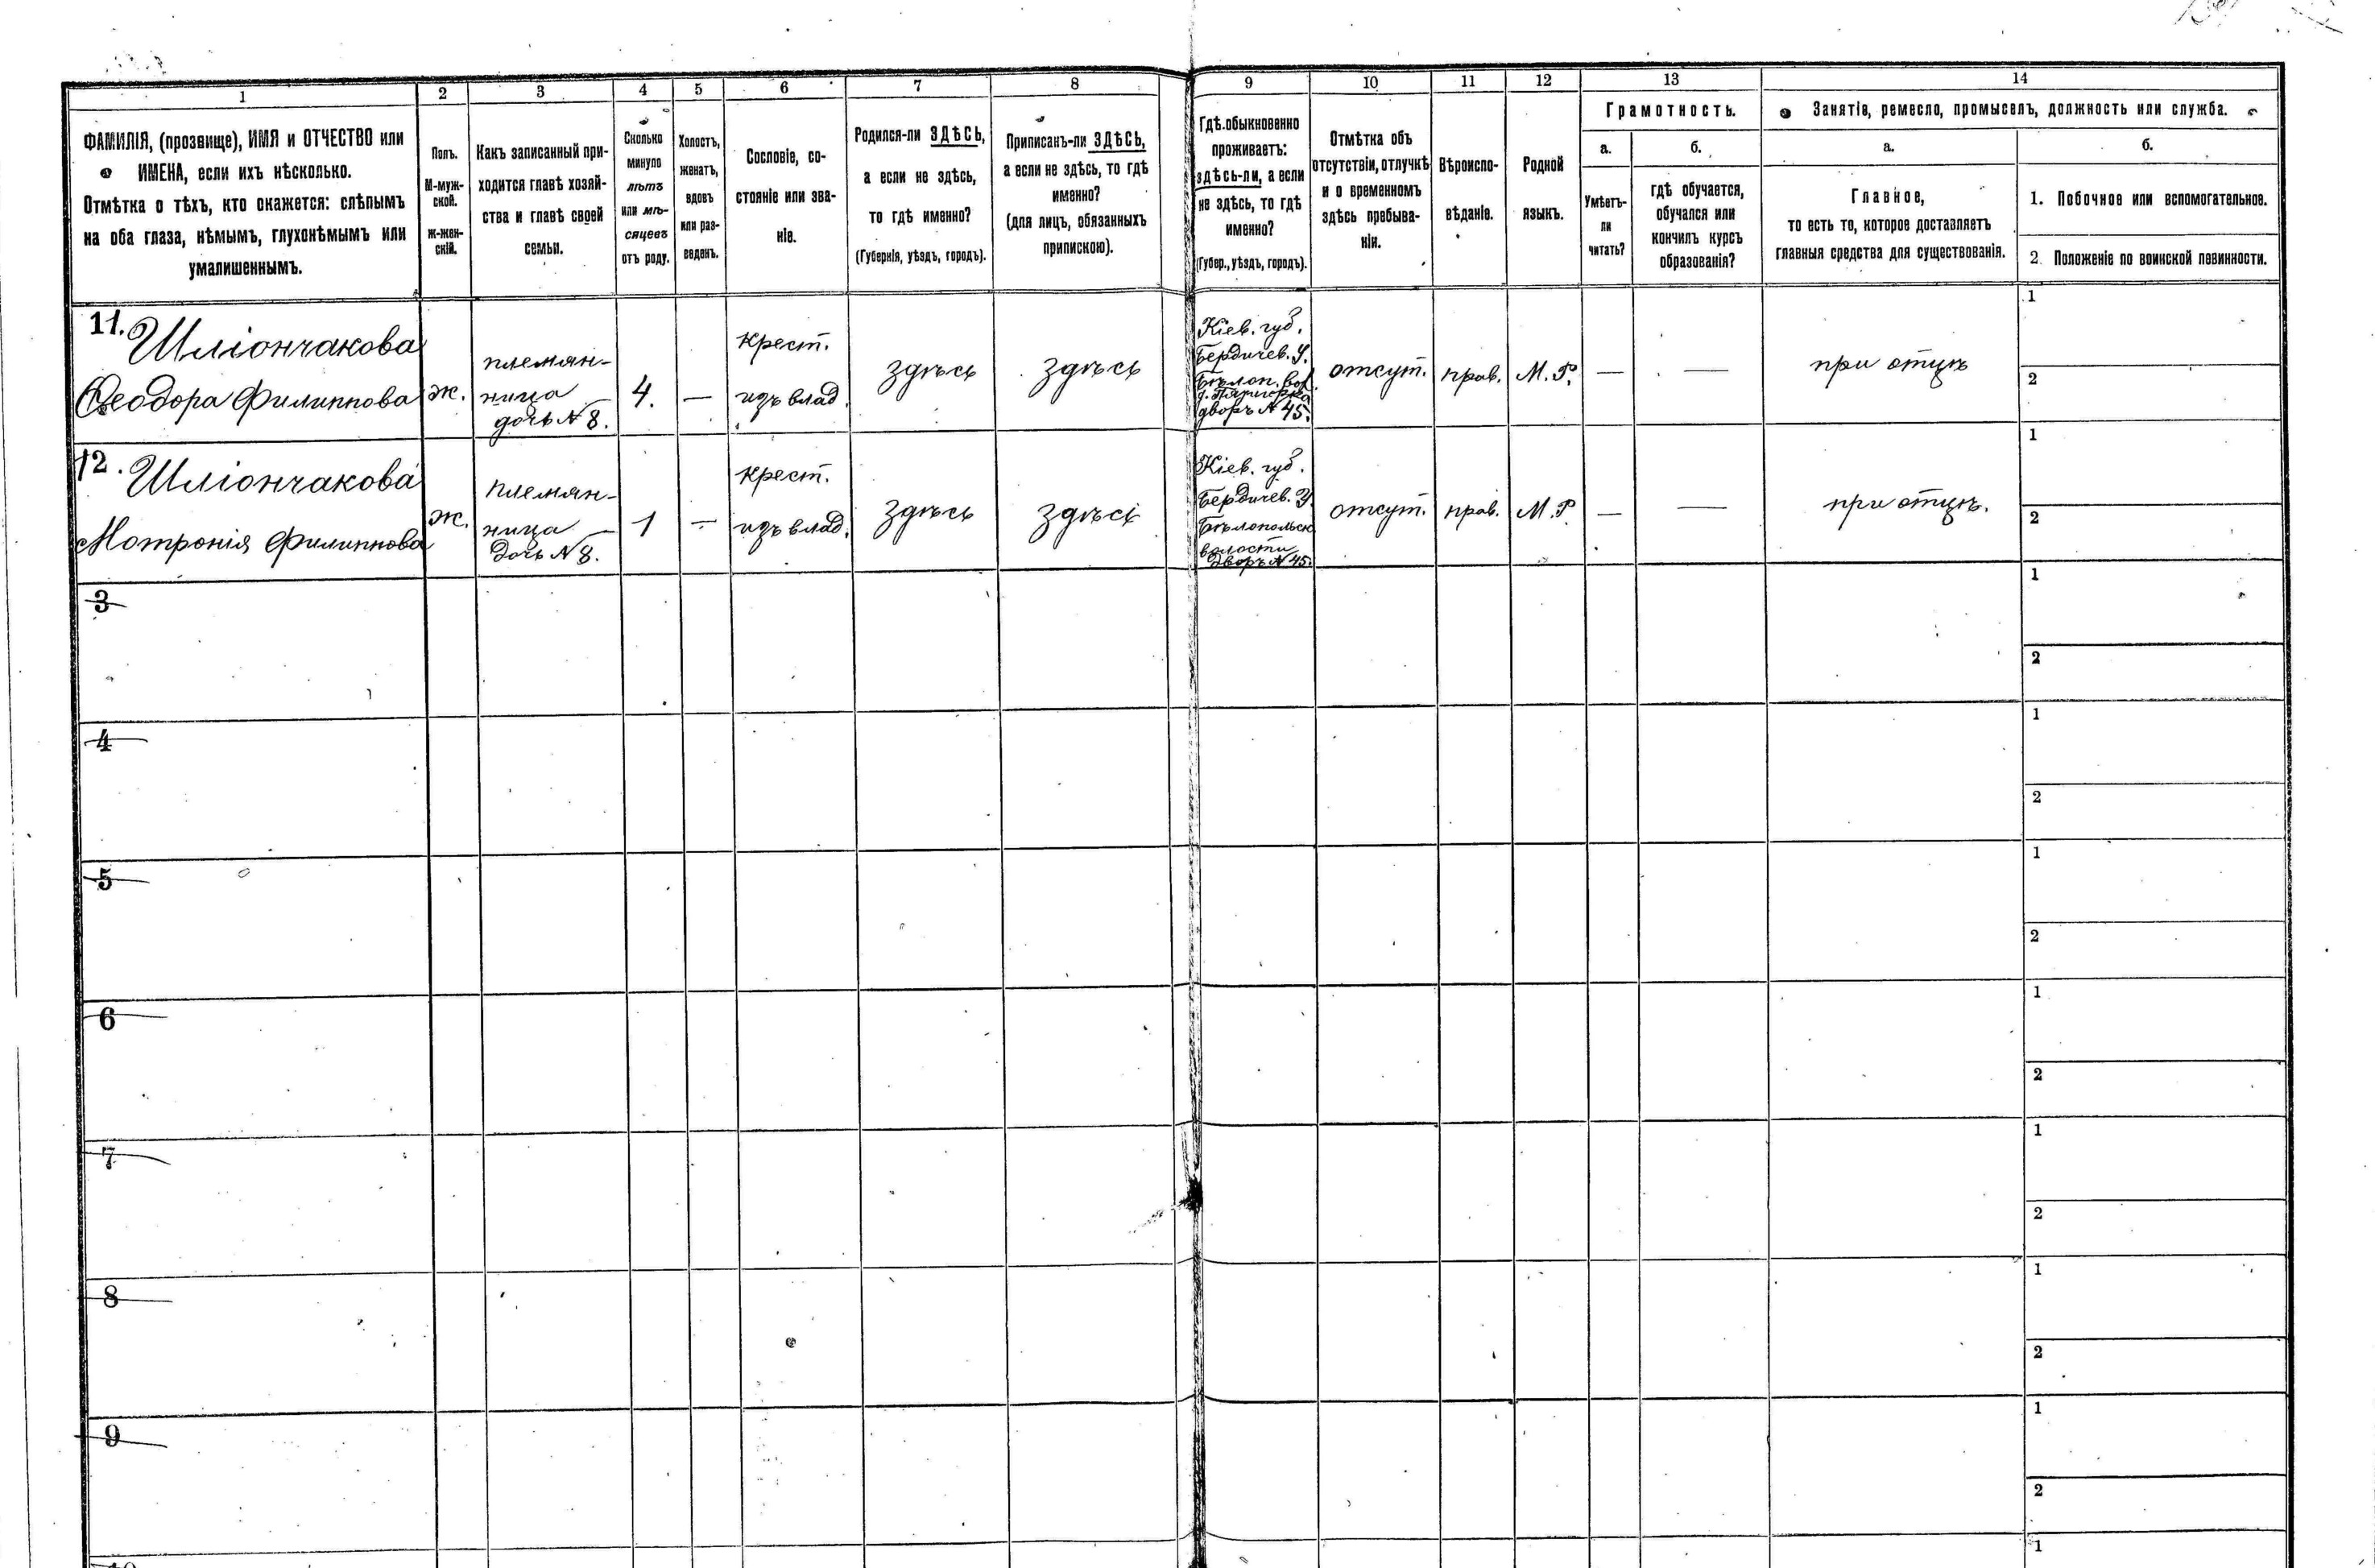 1
2
3
4
5
6
7
8
9
10
11
12
13
14
ФАМИЛІЯ, (прозвище), ИМЯ и ОТЧЕСТВО или
ИМЕНА, если ихъ нѣсколько.
Отмѣтка о тѣхъ, кто окажется: слѣпымъ
на оба глаза, нѣмымъ, глухонѣмымъ или
умалишеннымъ.
Полъ.
М-муж-
ской.
ж-жен-
скій.
Какъ записанный при-
ходится главѣ хозяй-
ства и главѣ своей
семьи.
Сколько
минуло
лѣтъ
или мѣ-
сяцевъ
отъ роду.
Холостъ,
женатъ,
вдовъ
или раз-
веденъ.
Сословіе, со-
стояніе или зва-
ніе.
Родился-ли ЗДѢСЬ,
а если не здѣсь,
то гдѣ именно?
(Губернія, уѣздъ, городъ).
Приписанъ-ли ЗДѢСЬ,
а если не здѣсь, то гдѣ
именно?
(для лицъ, обязанныхъ
припискою).
Гдѣ обыкновенно
проживаетъ:
здѣсь-ли, а если
не здѣсь, то гдѣ
именно?
(Губер., уѣздъ, городъ).
Отмѣтка объ
отсутствіи, отлучкѣ
и о временномъ
здѣсь пребыва-
ніи.
Вѣроиспо-
вѣданіе.
Родной
языкъ.
Грамотность.
а.
Умѣетъ-
ли
читать?
б.
гдѣ обучается,
обучался или
кончилъ курсъ
образованія?
Занятіе, ремесло, промыселъ, должность или служба.
а.
Главное,
то есть то, которое доставляетъ
главныя средства для существованія.
б.
1. Побочное или вспомогательное.
2 Положеніе по воинской повинности.
11.
Шліончакова
Ѳеодора Филиппова
ж.
племян-
ница
дочь № 8.
4.
—
крест.
изъ влад.
здѣсь
здѣсь
Кіев. губ.
Бердичев. У.
Бѣлоп. вол.
д. Пятигорка
дворъ № 45.
отсут.
прав.
М. Р.
—
—
при отцѣ
1
2
12.
Шліончакова
Мотронія Филиппова
ж.
племян-
ница
дочь № 8.
1
—
крест.
изъ влад.
здѣсь
здѣсь
Кіев. губ.
Бердичев. У
Бѣлопольск
волости
дворъ № 45.
отсут.
прав.
М. Р.
—
—
при отцѣ.
1
2
3
1
2
4
1
2
5
1
2
6
1
2
7
1
2
8
1
2
9
1
2
1